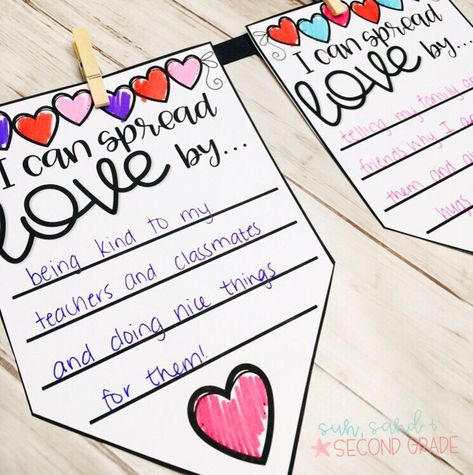 I can spread
love by...
being kind to my
teachers and classmates
and doing nice things
for them!
I can spread
love by...
telling my family
friends why I
them and
hugs
sun, sand +
SECOND GRADE